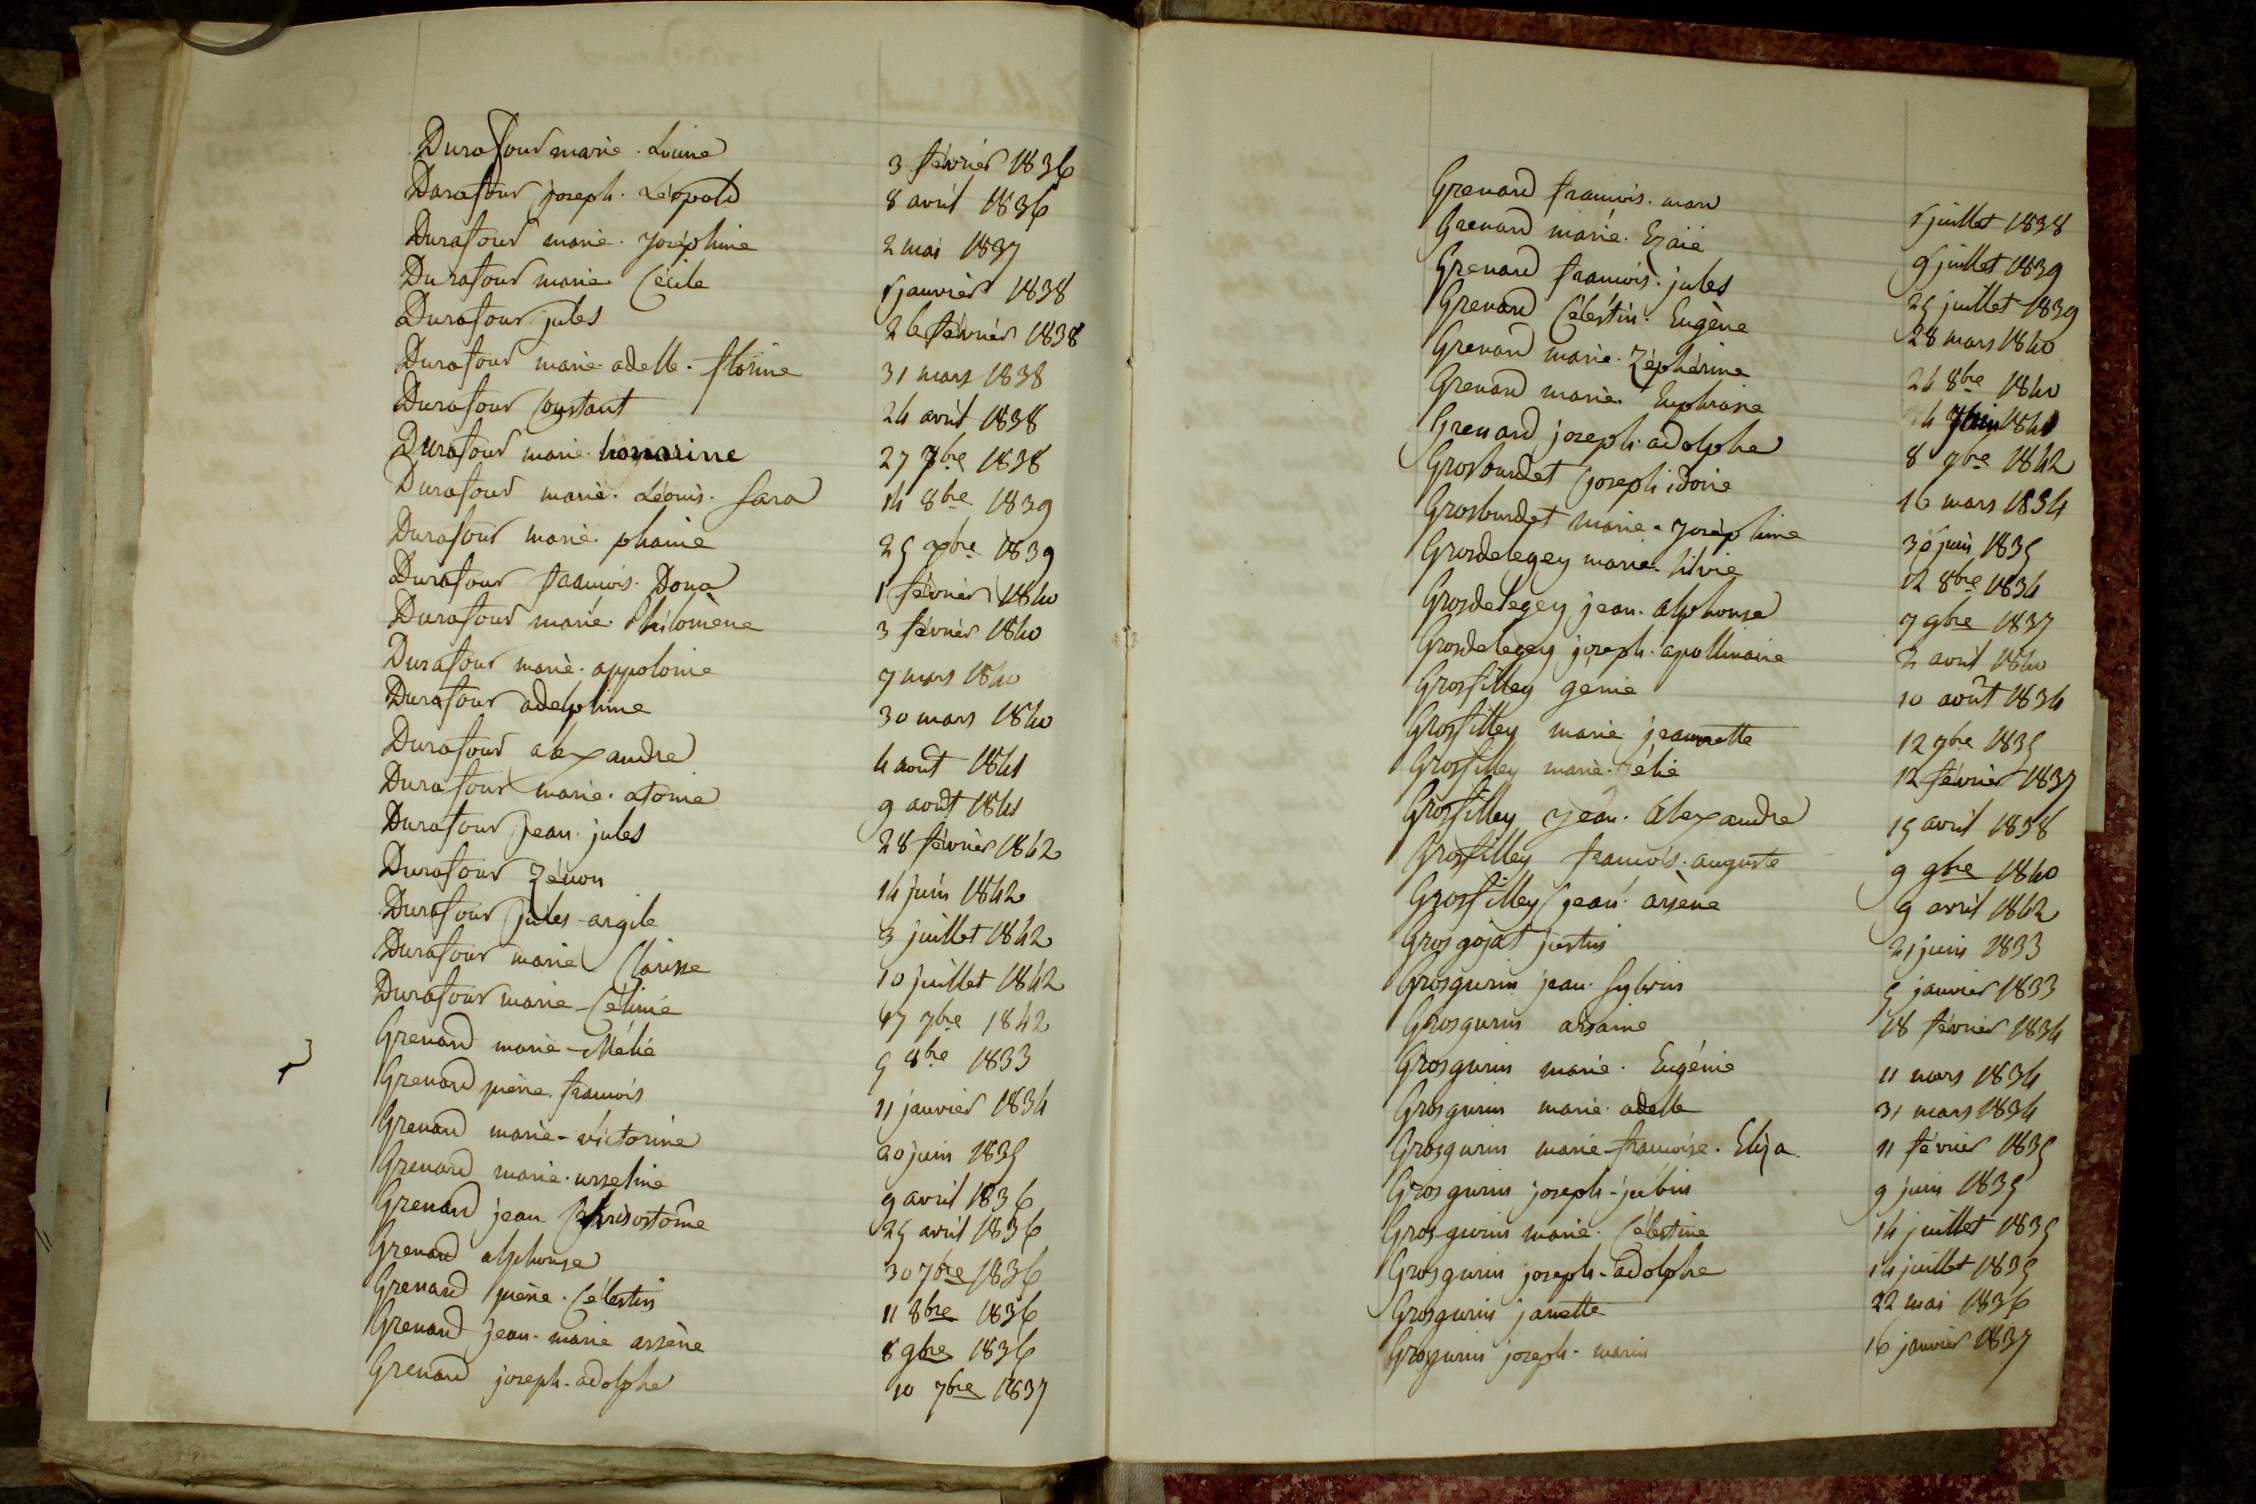 Durafour marie. Lucine 3 février 1836
Durafour joseph. Léopold 8 avril 1836
Durafour marie. Joséphine 2 mai 1837
Durafour marie Cécile janvier 1838
Durafour jules 26 février 1838
Durafour marie adelle. florine 31 mars 1838
Durafour Constant 24 avril 1838
Durafour marie. honorine 27 7bre 1838
Durafour marie. Léonis. Sara 14 8bre 1839
Durafour marie. phanie 25 1839
Durafour françois. Dona 1 février 1840
Durafour marie. Philomène 3 février 1840
Durafour marie. appolonie 7 mars 1840
Durafour adelphine 30 mars 1840
Durafour alexandre 4 août 1841
Durafour marie. atonie 9 août 1841
Durafour Jean. jules 28 février 1842
Durafour Zénon 14 juin 1842
Durafour jules-argile 3 juillet 1842
Durafour marie Clarisse 10 juillet 1842
Durafour marie-Célinie 17 7bre 1842
Grenard marie-Mélie 5 8bre 1833
Grenard pierre. françois 11 janvier 1834
Grenard marie-victorine 20 juin 1835
Grenard marie. urseline 9 avril 1836
Grenard jean Chrisostôme 25 avril 1836
Grenard alphonse 30 7bre 1836
Grenard pierre. Célestin 11 8bre 1836
Grenard jean-marie arsène 8 9bre 1836
Grenard joseph-adolphe 10 7bre 1837
Grenard françois. marc juillet 1838
Grenard marie. Ezaïe 9 juillet 1839
Grenard françois. jules 25 juillet 1839
Grenard Célestin. Eugène 28 mars 1840
Grenard marie. Zéphérine 24 8bre 1840
Grenard marie. Euphrasie
Grenard joseph. adolphe 8 7bre 1842
Grosburdet joseph idoine 16 mars 1834
Grosburdet marie-Joséphine 30 juin 1835
Grosdelegey marie. silvie 12 8bre 1834
Grosdelegey jean. alphonse 7 9bre 1837
Grosdelegey joseph. apollinaire 2 avril 1840
Grosfilley génie 10 août 1834
Grosfilley marie jeannette 12 7bre 1835
Grosfilley marie. élie 12 février 1837
Grosfilley Jean. Alexandre 15 avril 1838
Grosfilley françois. auguste 9 9bre 1840
Grosfilley jean. arsène 9 avril 1842
Grosgojat justin 21 juin 1833
Grosgurin jean. Sylvin 5 janvier 1833
Grosgurin arsaine 18 février 1834
Grosgurin marie. Eugénie 11 mars 1834
Grosgurin marie. adelle 31 mars 1834
Grosgurin marie françoise. Eliza 11 février 1835
Grosgurin joseph-jubin 9 juin 1835
Grosgurin marie. Célestine 14 juillet 1835
Grosgurin joseph-adolphe 14 juillet 1835
Grosgurin janette 22 mai 1836
Grosgurin joseph-marin 16 janvier 1837